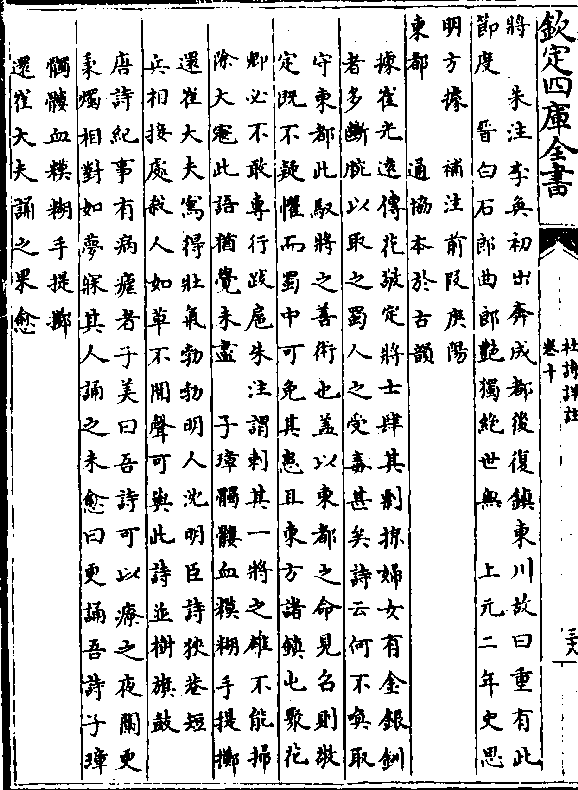 欽定四庫全書
杜詩詳註
卷十
將　朱注李奐初出奔成都後復鎮東川故曰重有此
節度　晉白石郎曲郎艷獨絕世無　上元二年史思
明方據　補注前段庚陽
東都　通協本於古韻
據崔光遠傳花敬定將士肆其剽掠婦女有金銀釧
者多斷腕以取之蜀人之受毒甚矣詩云何不喚取
守東都此馭將之善術也蓋以東都之命見召則敬
定既不疑懼而蜀中可免其患且東方諸鎮屯聚花
卿必不敢專行跋扈朱注謂刺其一將之雄不能掃
除大寇此語猶覺未盡　子璋髑髏血糢糊手提擲
還崔大夫寫得壯氣勃勃明人沈明臣詩狹巷短
兵相接處殺人如草不聞聲可與此詩並樹旗鼓
唐詩紀事有病瘧者子美曰吾詩可以療之夜闌更
秉燭相對如夢寐其人誦之未愈曰更誦吾詩子璋
髑髏血糢糊手提擲
還崔大夫誦之果愈